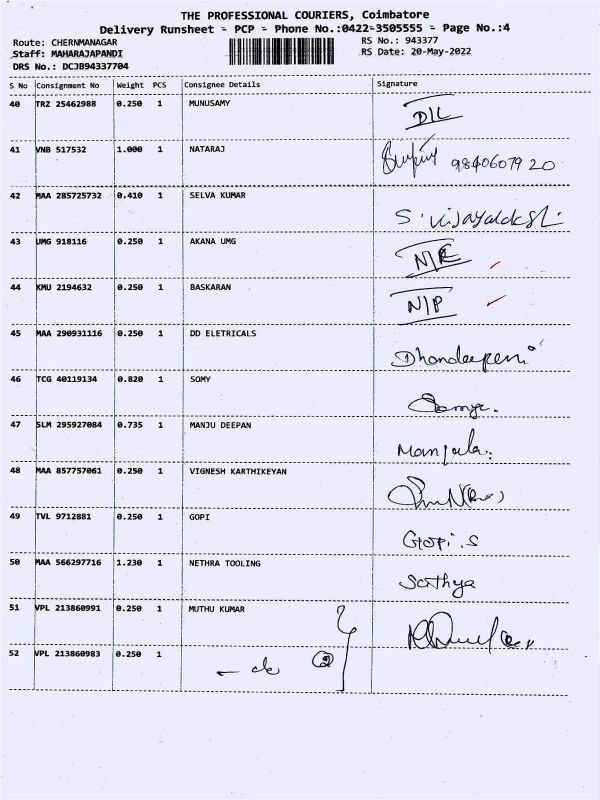 THE PROFESSIONAL COURIERS, Coimbatore
Delivery Runsheet - PCP - Phone No.:0422-3505555 - Page No.:4
Route: CHERNMANAGAR RS No.: 943377
Staff: MAHARAJAPANDI RS Date: 20-May-2022
DRS No.: DCJB94337704
S No Consignment No Weight PCS Consignee Details Signature
40 TRZ 25462988 0.250 1 MUNUSAMY D/L
41 VNB 517532 1.000 1 NATARAJ 9840607920
42 MAA 285725732 0.410 1 SELVA KUMAR
43 UMG 918116 0.250 1 AKANA UMG
44 KMU 2194632 0.250 1 BASKARAN N/P
45 MAA 290931116 0.250 1 DD ELETRICALS
46 TCG 40119134 0.820 1 SOMY
47 SLM 295927084 0.735 1 MANJU DEEPAN Manjula
48 MAA 857757061 0.250 1 VIGNESH KARTHIKEYAN
49 TVL 9712881 0.250 1 GOPI Gopi.S
50 MAA 566297716 1.230 1 NETHRA TOOLING Sathya
51 VPL 213860991 0.250 1 MUTHU KUMAR
52 VPL 213860983 0.250 1 - do